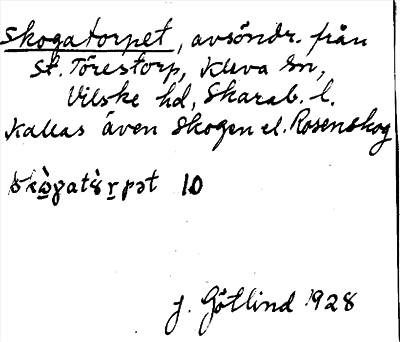 Skogatorpet, avsöndr. från
St. Törestorp, Kleva sn,
Vilske hd, Skarab. l.
Kallas även Skogen el. Rosenskog
10
J. Götlind 1928